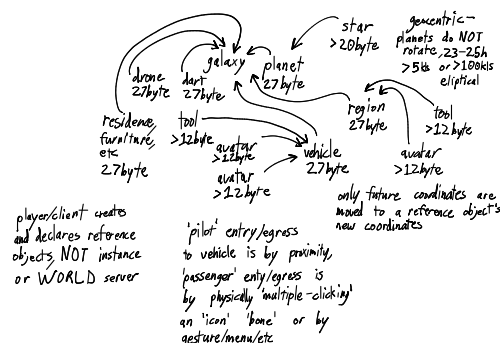 star
>20byte
geocentric-
planets do NOT
rotate, 23-25h
>5kls or >100kls
eliptical
galaxy
planet
27byte
drone
27byte
dart
27byte
region
27byte
tool
>12byte
residence,
furniture,
etc
27byte
tool
>12byte
avatar
>12byte
avatar
>12byte
vehicle
27byte
avatar
>12byte
only future coordinates are
moved to a reference object's
new coordinates
player/client creates
and declares reference
objects, NOT instance
or WORLD server
'pilot' entry/egress
to vehicle is by proximity,
'passenger' enty/egress is
by physically 'multiple-clicking'
an 'icon' 'bone' or by
gesture/menu/etc